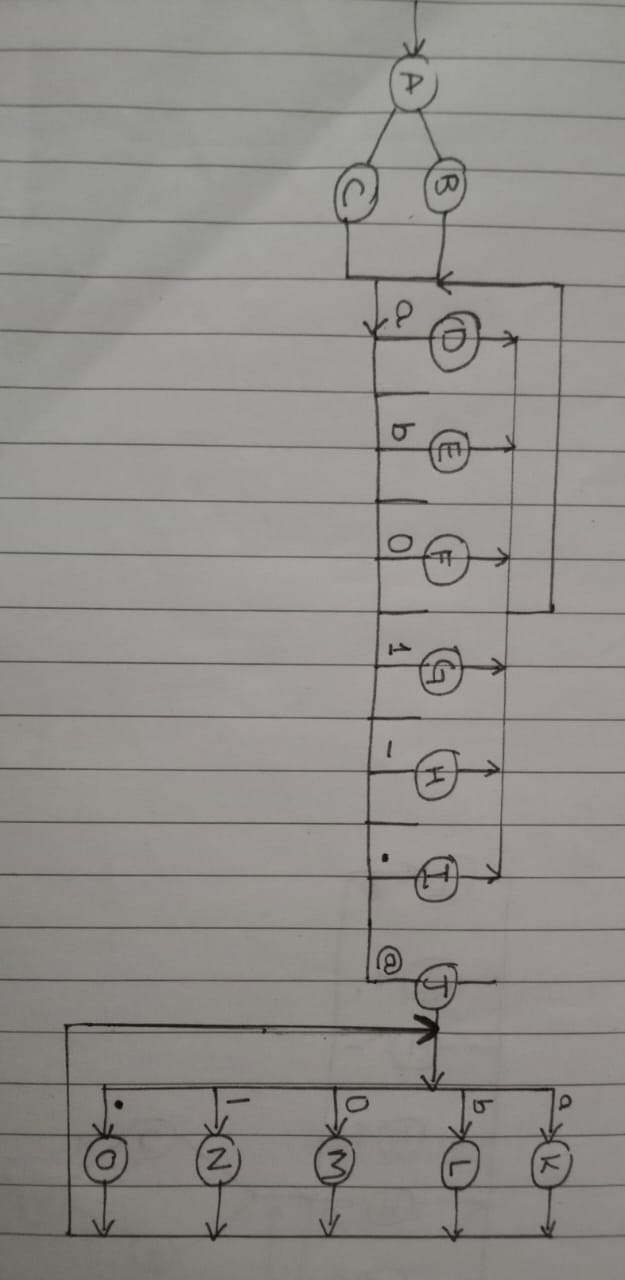 A
B
C
a D
b E
0 F
1 G
- H
. I
@ J
a K
b L
0 M
1 N
. O